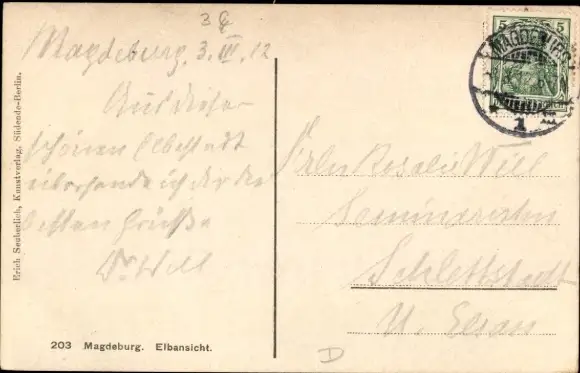 3
Magdeburg, 3. III. 12
Aus dieser
schönen Elbestadt
übersende ich dir die
besten Grüße
Dr Will
Erich Seuberlich, Kunstverlag, Südende-Berlin.
203 Magdeburg. Elbansicht.
5 5
MAGDEBURG
1
Frln Rosalie Will
Seminaristin
Schlettstadt
U. Elsass
D